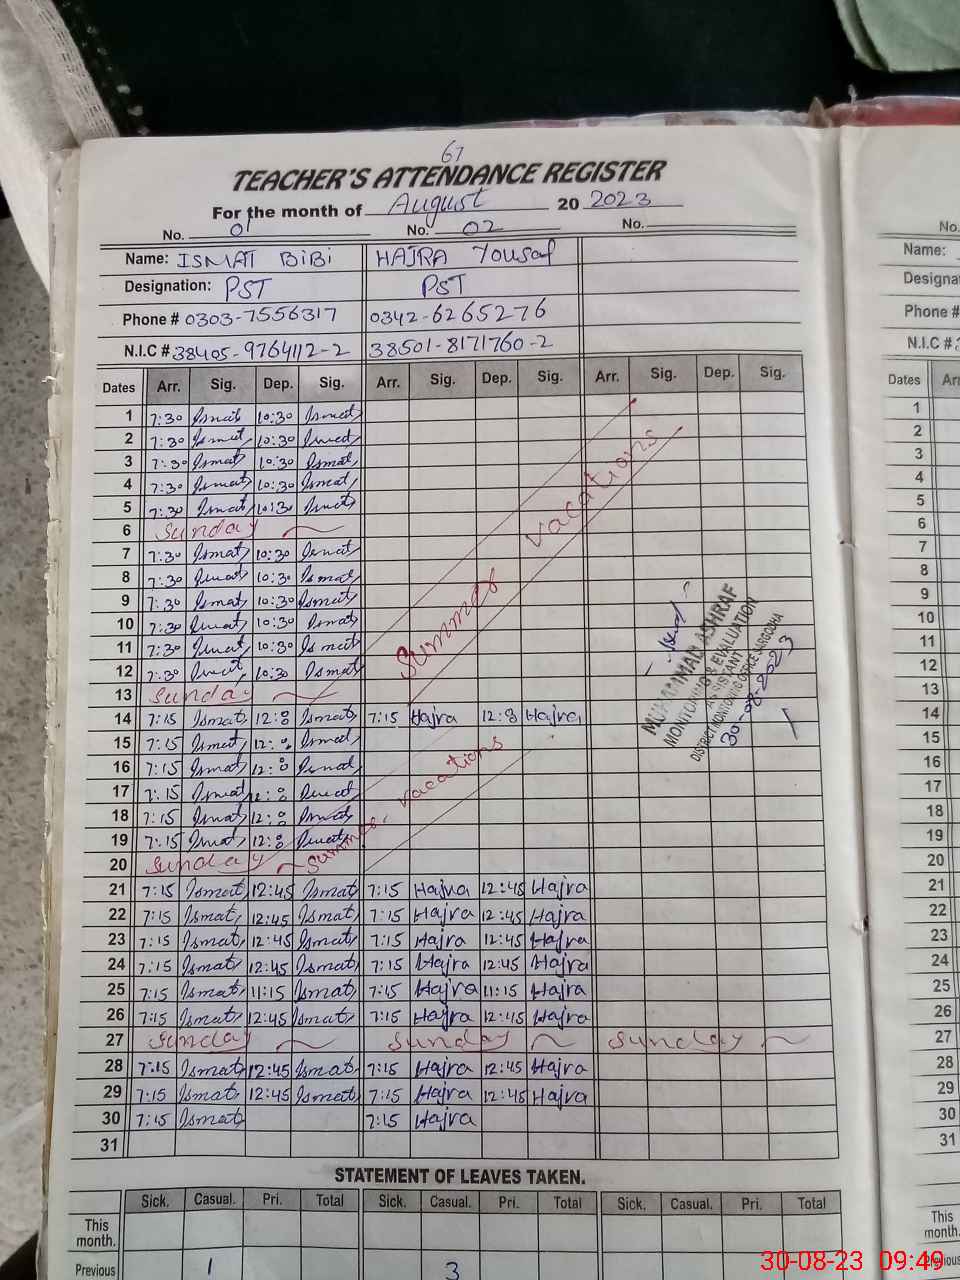 67
TEACHER'S ATTENDANCE REGISTER
For the month of August 20 2023
No. 01 No. 02 No.
Name: ISMAT BiBi HAJRA Yousaf
Designation: PST PST
Phone # 0303-7556317 0342-6265276
N.I.C # 38405-9764112-2 38501-8171760-2
Dates Arr. Sig. Dep. Sig. Arr. Sig. Dep. Sig. Arr. Sig. Dep. Sig.
1 7:30 Ismat 10:30 Ismat
2 7:30 Ismat 10:30 Ismat
3 7:30 Ismat 10:30 Ismat
4 7:30 Ismat 10:30 Ismat
5 7:30 Ismat 10:30 Ismat
6 Sunday
7 7:30 Ismat 10:30 Ismat
8 7:30 Ismat 10:30 Ismat
9 7:30 Ismat 10:30 Ismat
10 7:30 Ismat 10:30 Ismat
11 7:30 Ismat 10:30 Ismat
12 7:30 Ismat 10:30 Ismat
Summer vacations
13 Sunday
14 7:15 Ismat Ismat 7:15 Hajra Hajra
15 7:15 Ismat Ismat
16 7:15 Ismat Ismat
17 7:15 Ismat Ismat
18 7:15 Ismat Ismat
19 7:15 Ismat Ismat
20 Sunday
Summer vacations
MUHAMMAD ASHRAF
MONITORING & EVALUATION
ASSISTANT
DISTRICT MONITORING OFFICE SARGODHA
30-08-2023
21 7:15 Ismat 12:45 Ismat 7:15 Hajra 12:45 Hajra
22 7:15 Ismat 12:45 Ismat 7:15 Hajra 12:45 Hajra
23 7:15 Ismat 12:45 Ismat 7:15 Hajra 12:45 Hajra
24 7:15 Ismat 12:45 Ismat 7:15 Hajra 12:45 Hajra
25 7:15 Ismat 11:15 Ismat 7:15 Hajra 11:15 Hajra
26 7:15 Ismat 12:45 Ismat 7:15 Hajra 12:45 Hajra
27 Sunday Sunday Sunday
28 7:15 Ismat 12:45 Ismat 7:15 Hajra 12:45 Hajra
29 7:15 Ismat 12:45 Ismat 7:15 Hajra 12:45 Hajra
30 7:15 Ismat 7:15 Hajra
31
STATEMENT OF LEAVES TAKEN.
Sick. Casual. Pri. Total Sick. Casual. Pri. Total Sick. Casual. Pri. Total
This month.
Previous 1 3
No.
Name:
Designa
Phone #
N.I.C #
Dates
1
2
3
4
5
6
7
8
9
10
11
12
13
14
15
16
17
18
19
20
21
22
23
24
25
26
27
28
29
30
31
This
month.
30-08-23 09:49